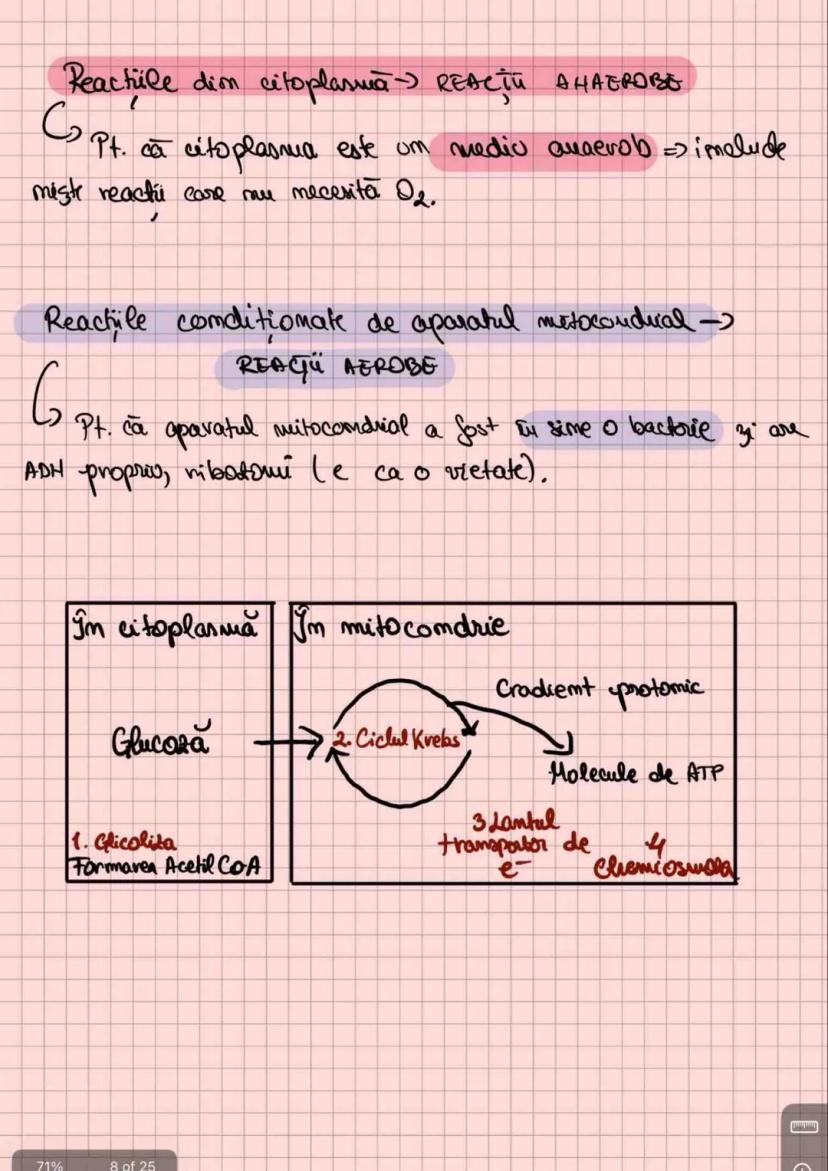 Reacțiile din citoplasmă → REACȚII ANAEROBE
Pt. că citoplasma este un mediu anaerob => include
niște reacții care nu necesită O2.
Reacțiile condiționate de aparatul mitocondrial →
REACȚII AEROBE
Pt. că aparatul mitocondrial a fost în sine o bacterie și are
ADN propriu, ribozomi (e ca o vietate).
În citoplasmă
În mitocondrie
Gradient protonic
Glucoză
2. Ciclul Krebs
Molecule de ATP
1. Glicoliza
Formarea Acetil CoA
3 Lanțul
transportor de
e-
4
Chemiosmoza
71%
8 of 25